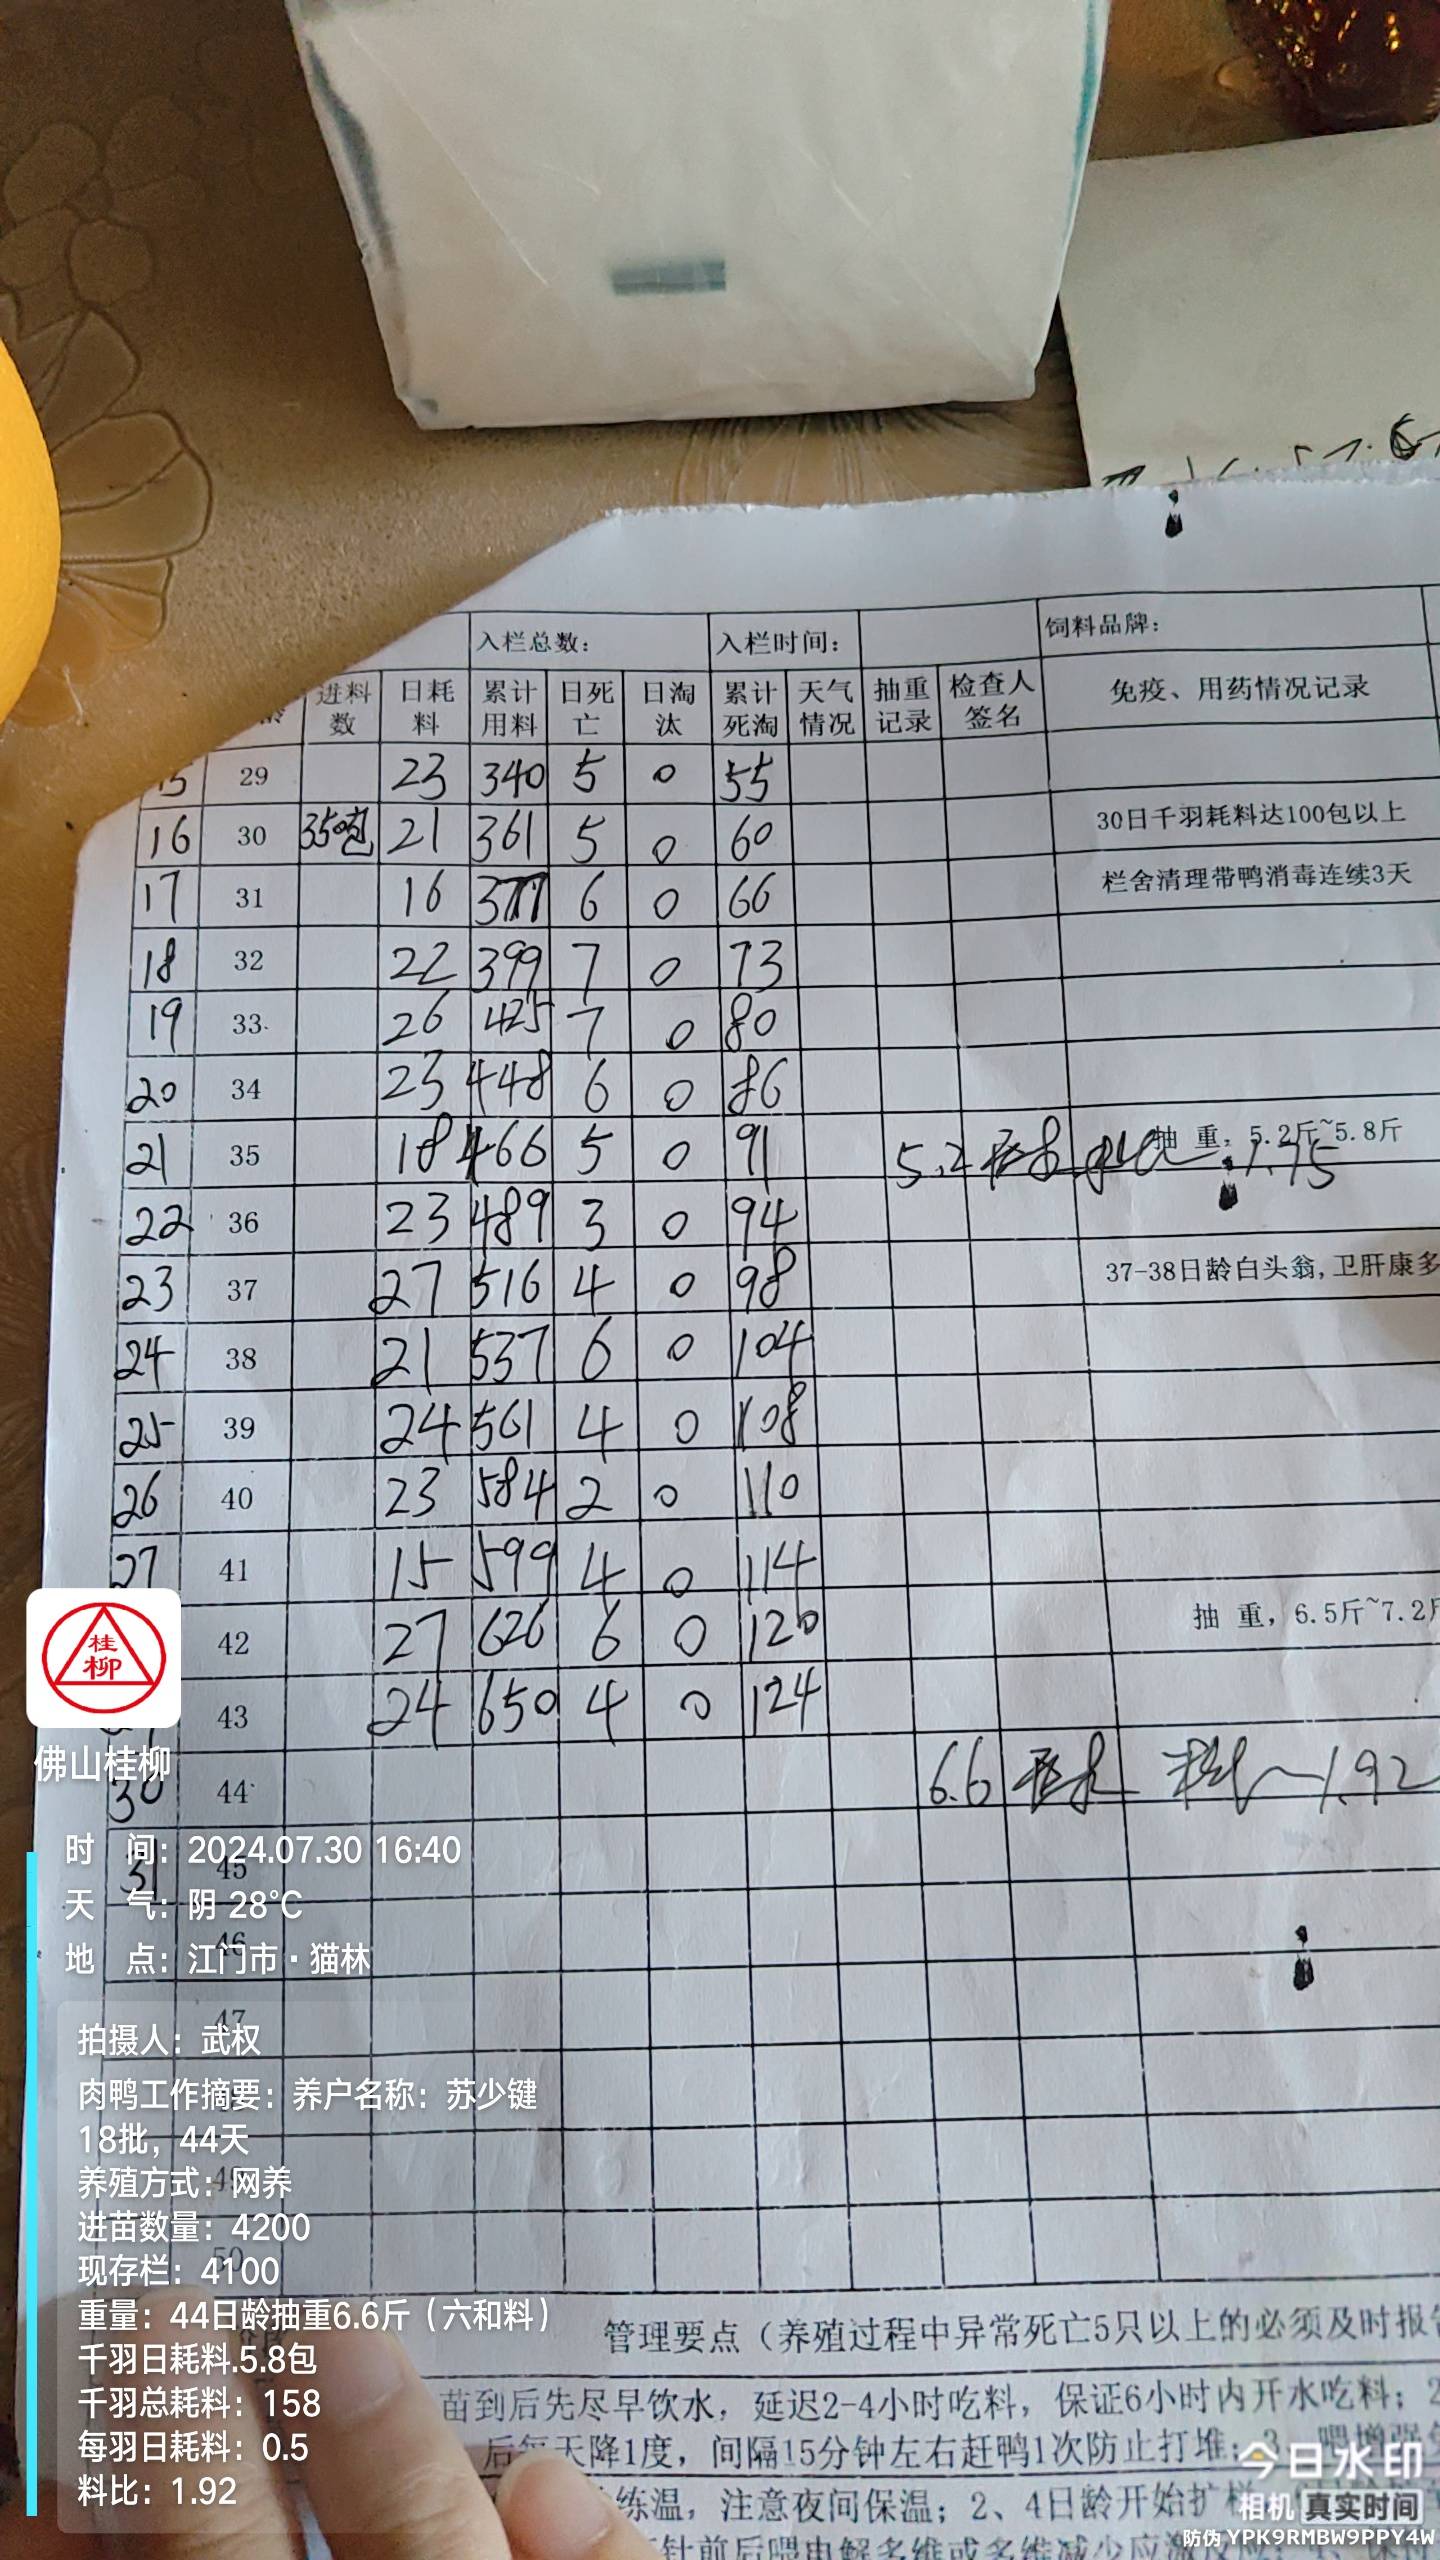 入栏总数： 入栏时间： 饲料品牌：
进料数 日耗料 累计用料 日死亡 日淘汰 累计死淘 天气情况 抽重记录 检查人签名 免疫、用药情况记录
15 29 23 340 5 0 55
16 30 350包 21 361 5 0 60 30日千羽耗料达100包以上
17 31 16 377 6 0 66 栏舍清理带鸭消毒连续3天
18 32 22 399 7 0 73
19 33 26 425 7 0 80
20 34 23 448 6 0 86
21 35 18 466 5 0 91 5.2 抽 重，5.2斤~5.8斤 1.75
22 36 23 489 3 0 94
23 37 27 516 4 0 98 37-38日龄白头翁,卫肝康多
24 38 21 537 6 0 104
25 39 24 561 4 0 108
26 40 23 584 2 0 110
27 41 15 599 4 0 114
42 27 626 6 0 120 抽 重，6.5斤~7.2斤
43 24 650 4 0 124
30 44 6.6 1.92
31 45
46
47
49
50
桂柳
佛山桂柳
时 间：2024.07.30 16:40
天 气：阴 28°C
地 点：江门市·猫林
拍摄人：武权
肉鸭工作摘要：养户名称：苏少键
18批，44天
养殖方式：网养
进苗数量：4200
现存栏：4100
重量：44日龄抽重6.6斤（六和料）
千羽日耗料.5.8包
千羽总耗料：158
每羽日耗料：0.5
料比：1.92
管理要点（养殖过程中异常死亡5只以上的必须及时报告
苗到后先尽早饮水，延迟2-4小时吃料，保证6小时内开水吃料；2
后每天降1度，间隔15分钟左右赶鸭1次防止打堆；3
练温，注意夜间保温；2、4日龄开始扩栏
针前后喂电解多维或多维减少应激反应
今日水印
相机 真实时间
防伪 YPK9RMBW9PPY4W